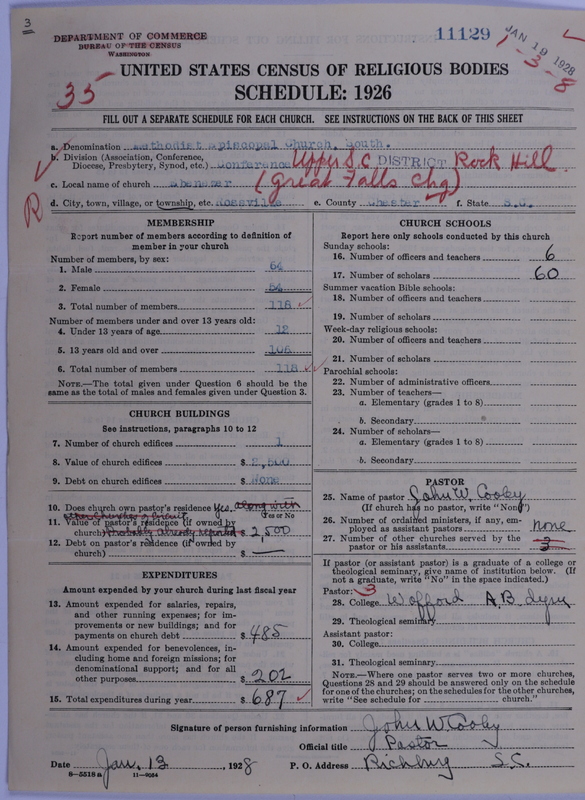 3
DEPARTMENT OF COMMERCE
BUREAU OF THE CENSUS
WASHINGTON
11129
JAN 19 1928
1-3-8
UNITED STATES CENSUS OF RELIGIOUS BODIES
SCHEDULE: 1926
35
FILL OUT A SEPARATE SCHEDULE FOR EACH CHURCH. SEE INSTRUCTIONS ON THE BACK OF THIS SHEET
a. Denomination Methodist Episcopal Church, South.
b. Division (Association, Conference, Diocese, Presbytery, Synod, etc.) Conference Upper S.C. DISTRICT Rock Hill
c. Local name of church Ebenezer (Great Falls Chg)
R
d. City, town, village, or township, etc. Rossville e. County Chester f. State S.C.
MEMBERSHIP
Report number of members according to definition of
member in your church
Number of members, by sex:
1. Male 64
2. Female 54
3. Total number of members 118
Number of members under and over 13 years old:
4. Under 13 years of age 12
5. 13 years old and over 106
6. Total number of members 118
NOTE.—The total given under Question 6 should be the
same as the total of males and females given under Question 3.
CHURCH BUILDINGS
See instructions, paragraphs 10 to 12
7. Number of church edifices 1
8. Value of church edifices $ 2,500
9. Debt on church edifices $ None
10. Does church own pastor's residence Yes. along with
other Churches of circuit
Yes or No
11. Value of pastor's residence (if owned by
church) Probably already reported $ 2,500
12. Debt on pastor's residence (if owned by
church) $ —
EXPENDITURES
Amount expended by your church during last fiscal year
13. Amount expended for salaries, repairs,
and other running expenses; for im-
provements or new buildings; and for
payments on church debt $ 485
14. Amount expended for benevolences, in-
cluding home and foreign missions; for
denominational support; and for all
other purposes $ 202
15. Total expenditures during year $ 687
CHURCH SCHOOLS
Report here only schools conducted by this church
Sunday schools:
16. Number of officers and teachers 6
17. Number of scholars 60
Summer vacation Bible schools:
18. Number of officers and teachers
19. Number of scholars
Week-day religious schools:
20. Number of officers and teachers
21. Number of scholars
Parochial schools:
22. Number of administrative officers
23. Number of teachers—
a. Elementary (grades 1 to 8)
b. Secondary
24. Number of scholars—
a. Elementary (grades 1 to 8)
b. Secondary
PASTOR
25. Name of pastor John W. Cooley
(If church has no pastor, write "None")
26. Number of ordained ministers, if any, em-
ployed as assistant pastors none
27. Number of other churches served by the
pastor or his assistants 3
If pastor (or assistant pastor) is a graduate of a college or
theological seminary, give name of institution below. (If
not a graduate, write "No" in the space indicated.)
Pastor: 3
28. College Wofford A.B.
29. Theological seminary
Assistant pastor:
30. College
31. Theological seminary
NOTE.—Where one pastor serves two or more churches,
Questions 28 and 29 should be answered only on the schedule
for one of the churches; on the schedules for the other churches,
write "See schedule for church."
Signature of person furnishing information John W. Cooley
Official title Pastor
Date Jan. 13, 1928 P. O. Address Richburg S.C.
8—5518 a 11—9064